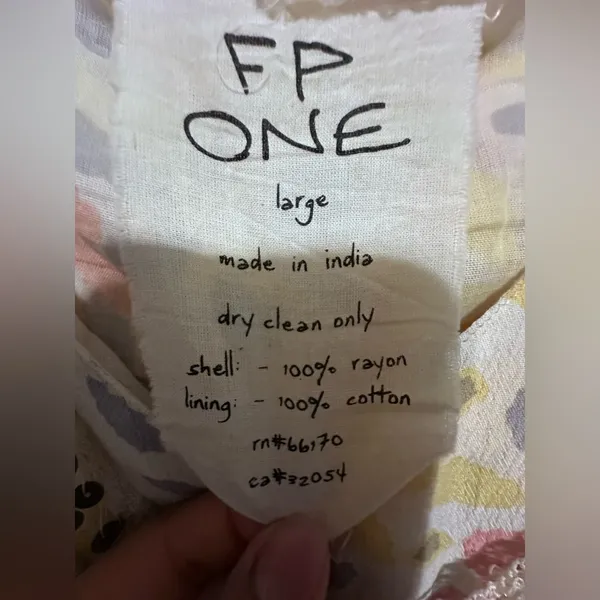 FP
ONE
large
made in india
dry clean only
shell: - 100% rayon
lining: - 100% cotton
rn#66170
ca#32054